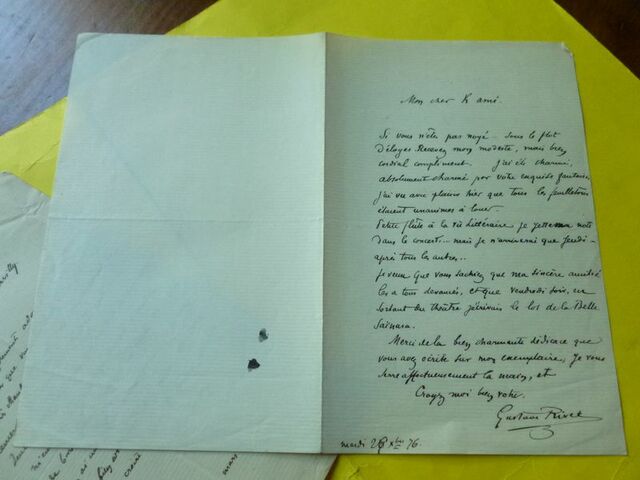 Mon cher & ami
Si vous n'êtes pas noyé sous le flot
d'éloges recevez mon modeste, mais bien
cordial compliment. J'ai été charmé,
absolument charmé par votre exquise fantaisie,
j'ai vu avec plaisir hier que tous les feuilletons
étaient unanimes à louer.
Petite flûte à la vie Littéraire je jetterai ma note
dans le concert... mais je n'arriverai que jeudi -
après tous les autres...
Je veux que vous sachiez que ma sincère amitié
les a tous devancés, et que vendredi soir, en
sortant du théâtre j'écrivais le los de la Belle
Saïnara.
Merci de la bien charmante dédicace que
vous avez écrite sur mon exemplaire, je vous
serre affectueusement la main, et
Croyez moi bien votre.
Gustave Rivet
mardi Xbre 76.